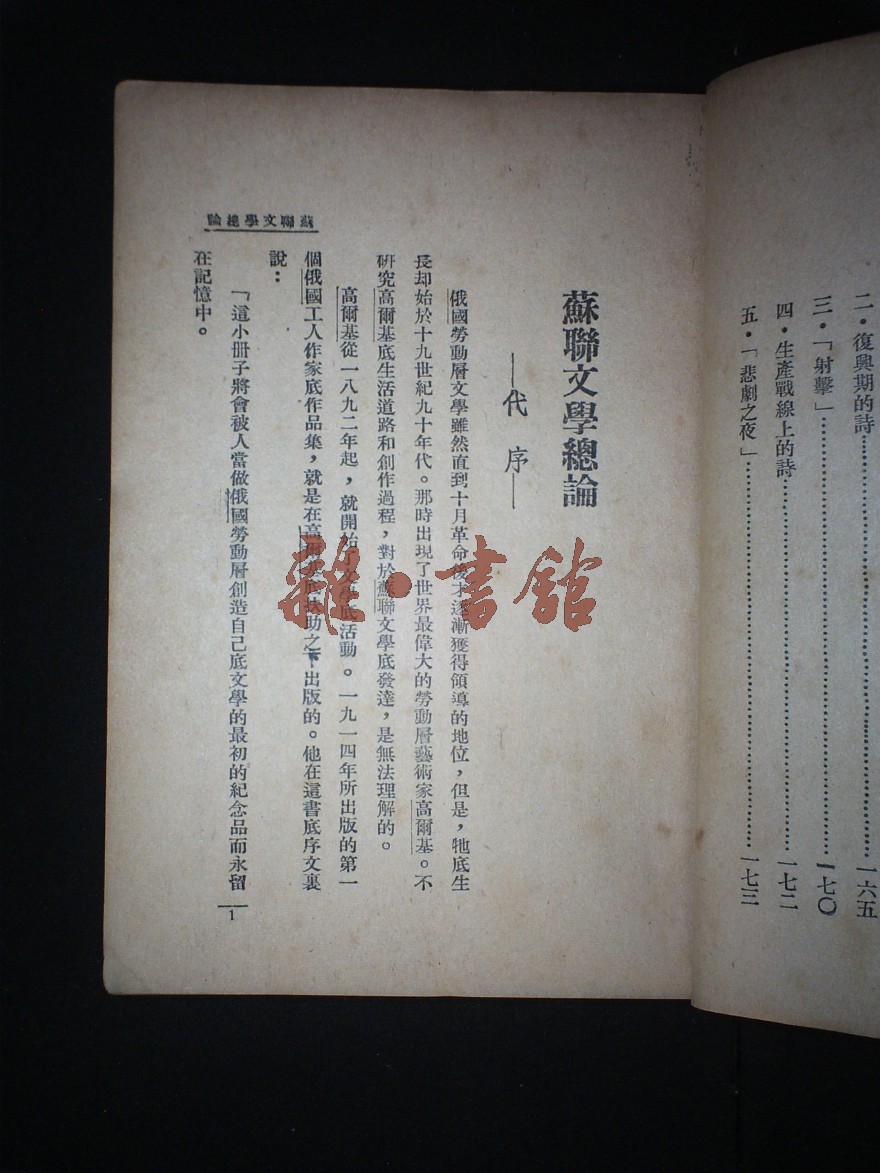 二・復興期的詩……一六五
三・「射擊」……一七〇
四・生產戰線上的詩……一七二
五・「悲劇之夜」……一七三
蘇聯文學總論
—代序—
俄國勞動層文學雖然直到十月革命後才逐漸獲得領導的地位，但是，牠底生
長却始於十九世紀九十年代。那時出現了世界最偉大的勞動層藝術家高爾基。不
研究高爾基底生活道路和創作過程，對於蘇聯文學底發達，是無法理解的。
高爾基從一八九二年起，就開始了文學底活動。一九一四年所出版的第一
個俄國工人作家底作品集，就是在高爾基底扶助之下出版的。他在這書底序文裏
說：
「這小册子將會被人當做俄國勞動層創造自己底文學的最初的紀念品而永留
在記憶中。
蘇聯文學總論
1
雜・書館